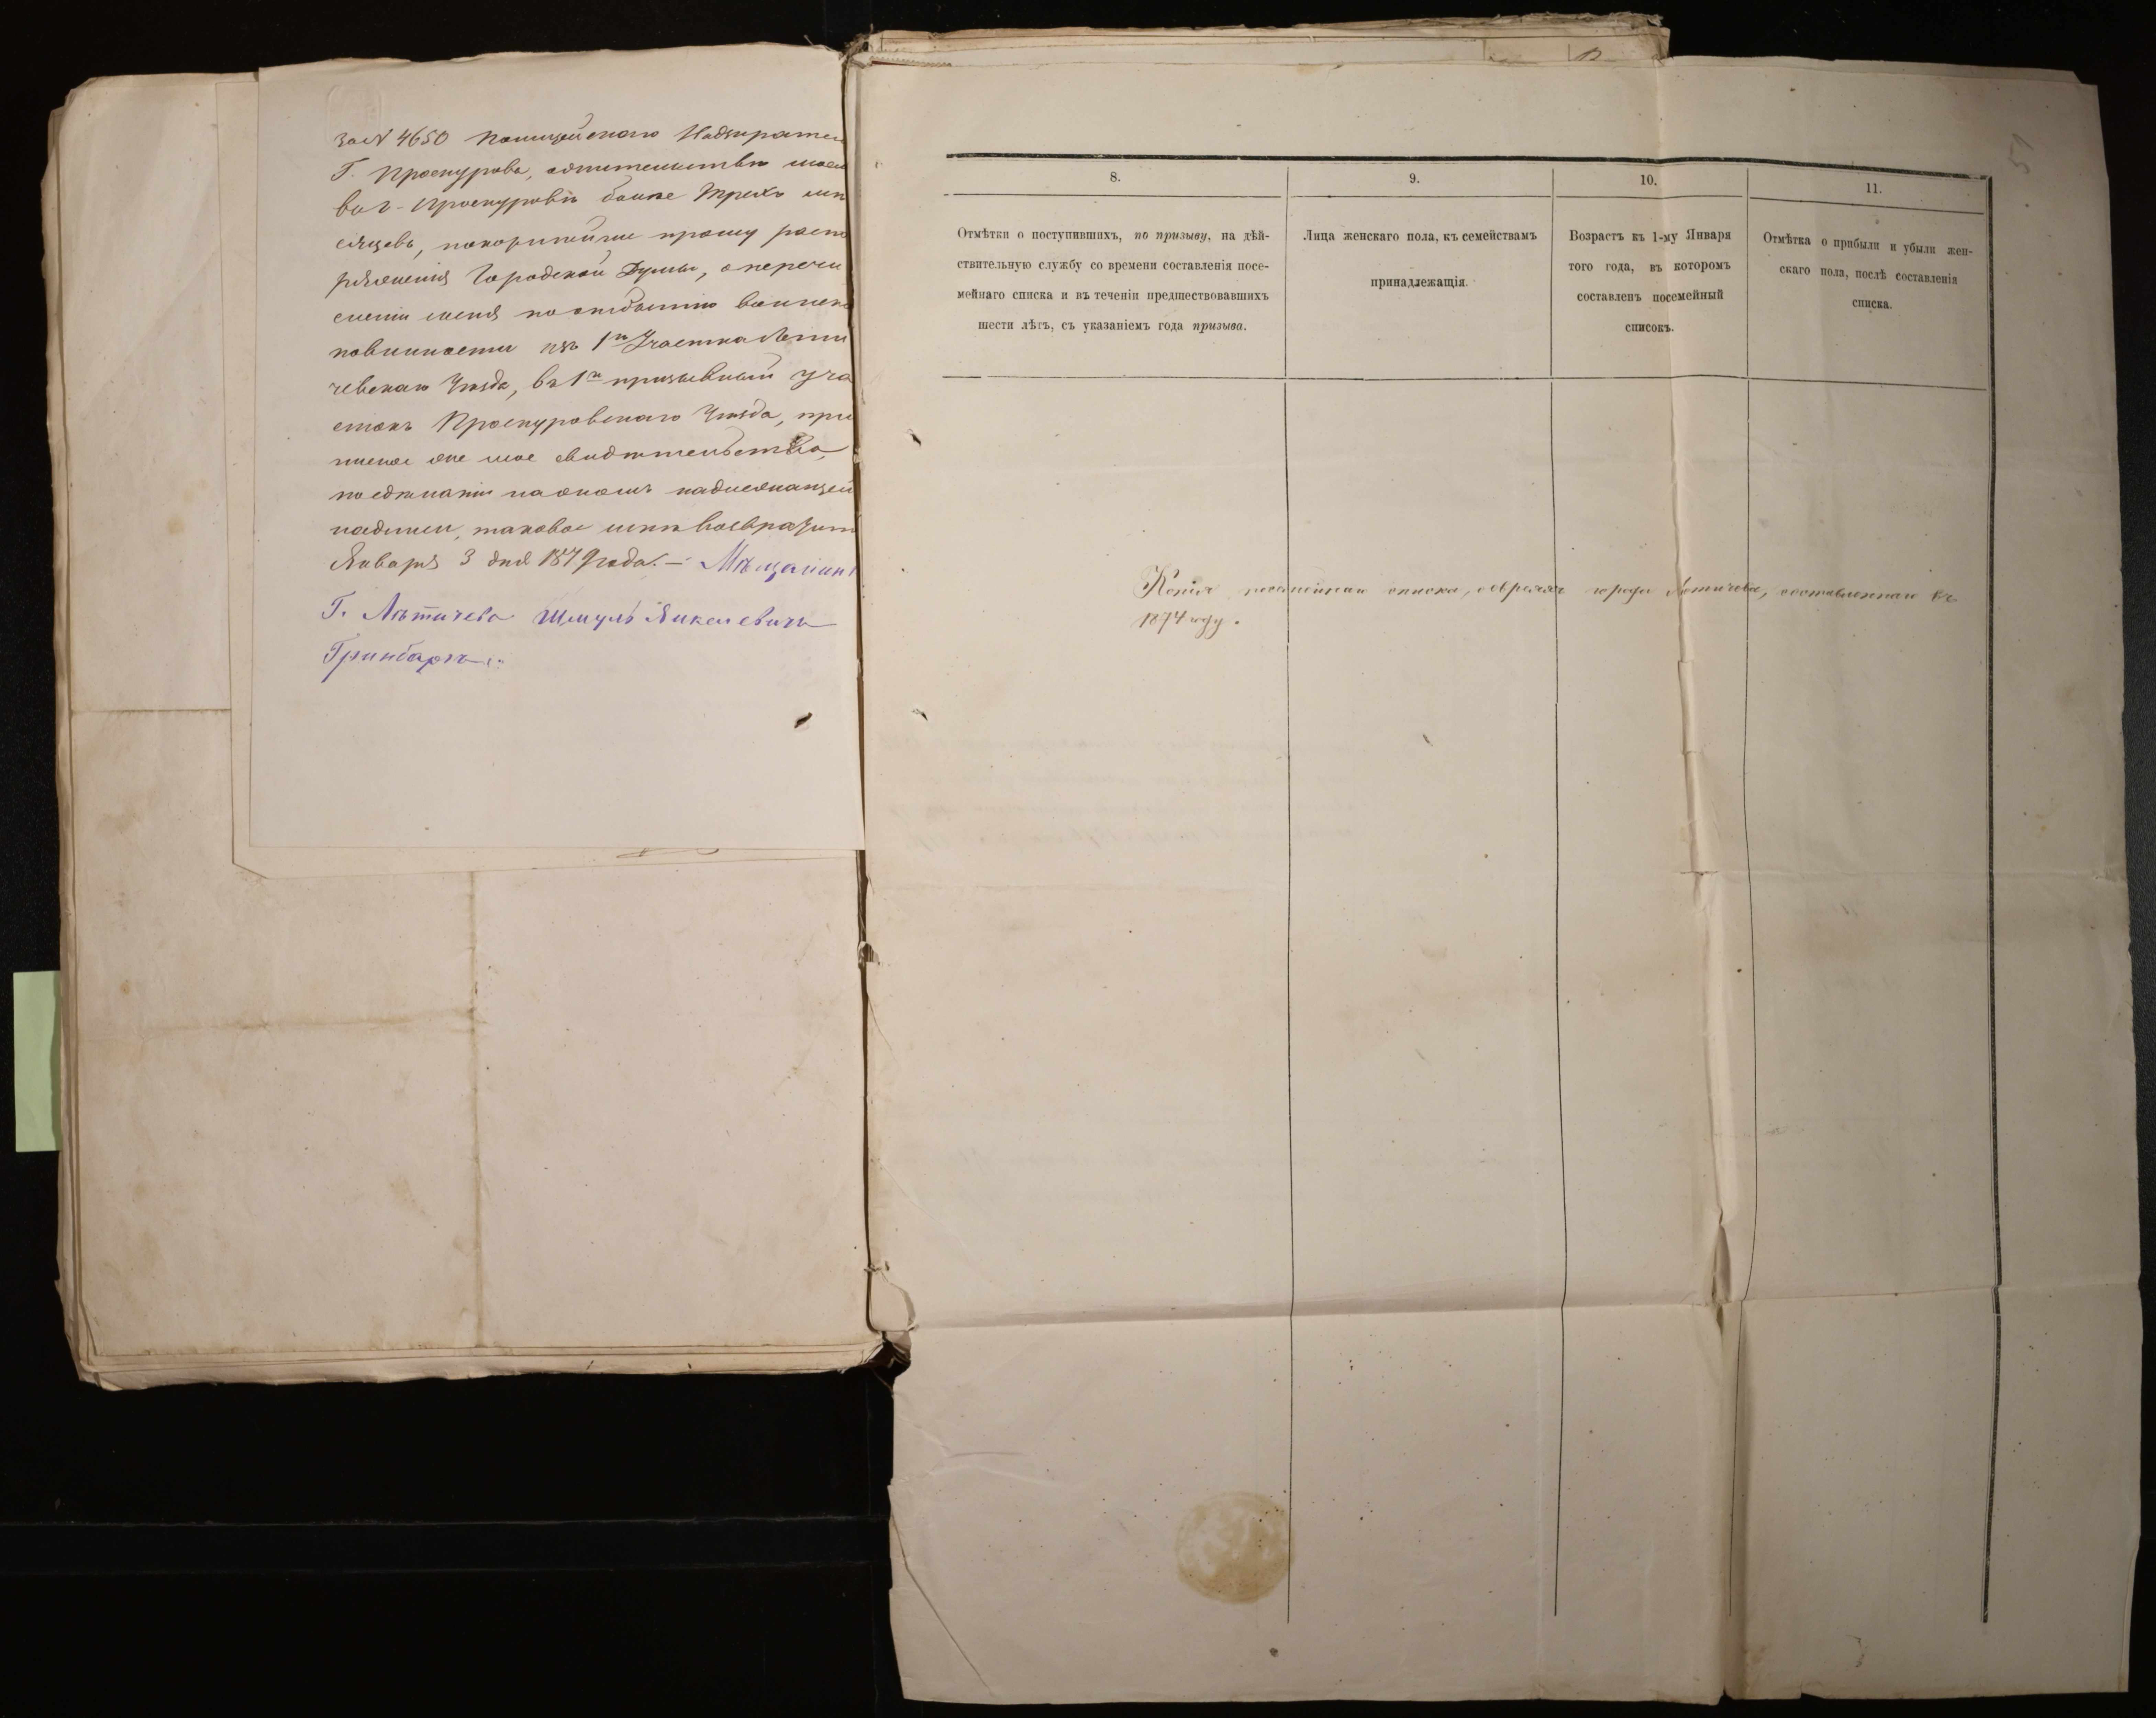 за № 4650 Полицейскаго Надзирател
Г. Проскурова, ожительствѣ моем
въ г. Проскуровѣ болѣе трехъ мѣ
сяцевъ, покорнѣйше прошу распо
ряженія Городской Думы, о перечи
сленіи меня по отбытію воинско
повинности изъ 1го Участка Лети
чевскаго Уѣзда, въ 1й призывный уча
стокъ Проскуровскаго Уѣзда, при
мое свидѣтельство,
по сдѣланіи на ономъ надлежащей
надписи, таковое мнѣ возвратит
Января 3 дня 1879 года. — Мѣщанинъ
Г. Лѣтичева Шмуль Янкелевичъ
Гринбаръ
51
8.
9.
10.
11.
Отмѣтки о поступившихъ, по призыву, на дѣй-
ствительную службу со времени составленія посе-
мейнаго списка и въ теченіи предшествовавшихъ
шести лѣтъ, съ указаніемъ года призыва.
Лица женскаго пола, къ семействамъ
принадлежащія.
Возрастъ къ 1-му Января
того года, въ которомъ
составленъ посемейный
списокъ.
Отмѣтка о прибыли и убыли жен-
скаго пола, послѣ составленія
списка.
Копія посемейнаго списка, о евреяхъ города Летичева, составленнаго въ
1874 году.